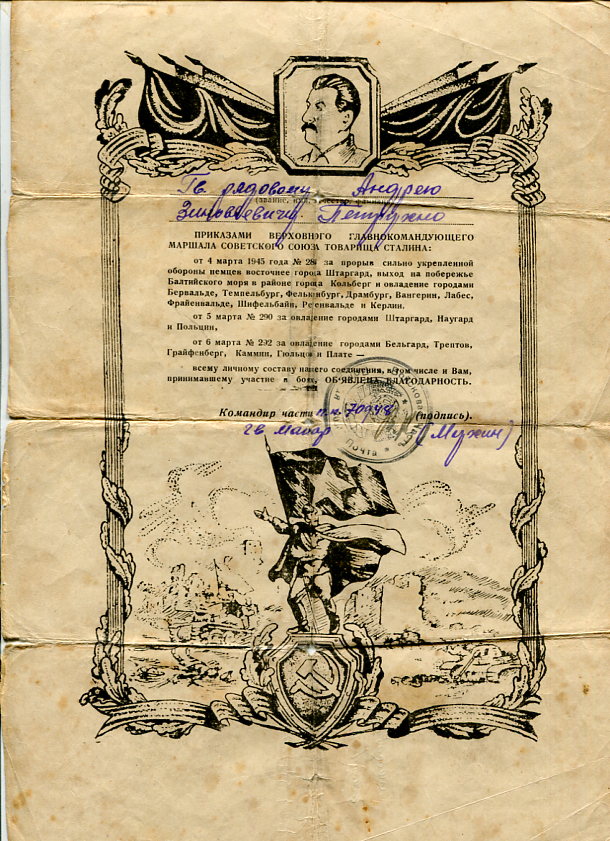 Гв. рядовому Андрею
(звание, имя, отчество, фамилия)
Зиновьевичу Петрухно
ПРИКАЗАМИ ВЕРХОВНОГО ГЛАВНОКОМАНДУЮЩЕГО
МАРШАЛА СОВЕТСКОГО СОЮЗА ТОВАРИЩА СТАЛИНА:
от 4 марта 1945 года № 28 за прорыв сильно укрепленной
обороны немцев восточнее города Штаргард, выход на побережье
Балтийского моря в районе города Кольберг и овладение городами
Бервальде, Темпельбург, Фалькенбург, Драмбург, Вангерин, Лабес,
Фрайенвальде, Шифельбайн, Регенвальде и Керлин.
от 5 марта № 290 за овладение городами Штаргард, Наугард
и Польцин,
от 6 марта № 292 за овладение городами Бельгард, Трептов,
Грайфенберг, Каммин, Гюльцов и Плате —
всему личному составу нашего соединения, в том числе и Вам,
принимавшему участие в боях, ОБ'ЯВЛЕНА БЛАГОДАРНОСТЬ.
Командир части п.п. 70948 (подпись).
гв майор (Мухин)
Полевая почта